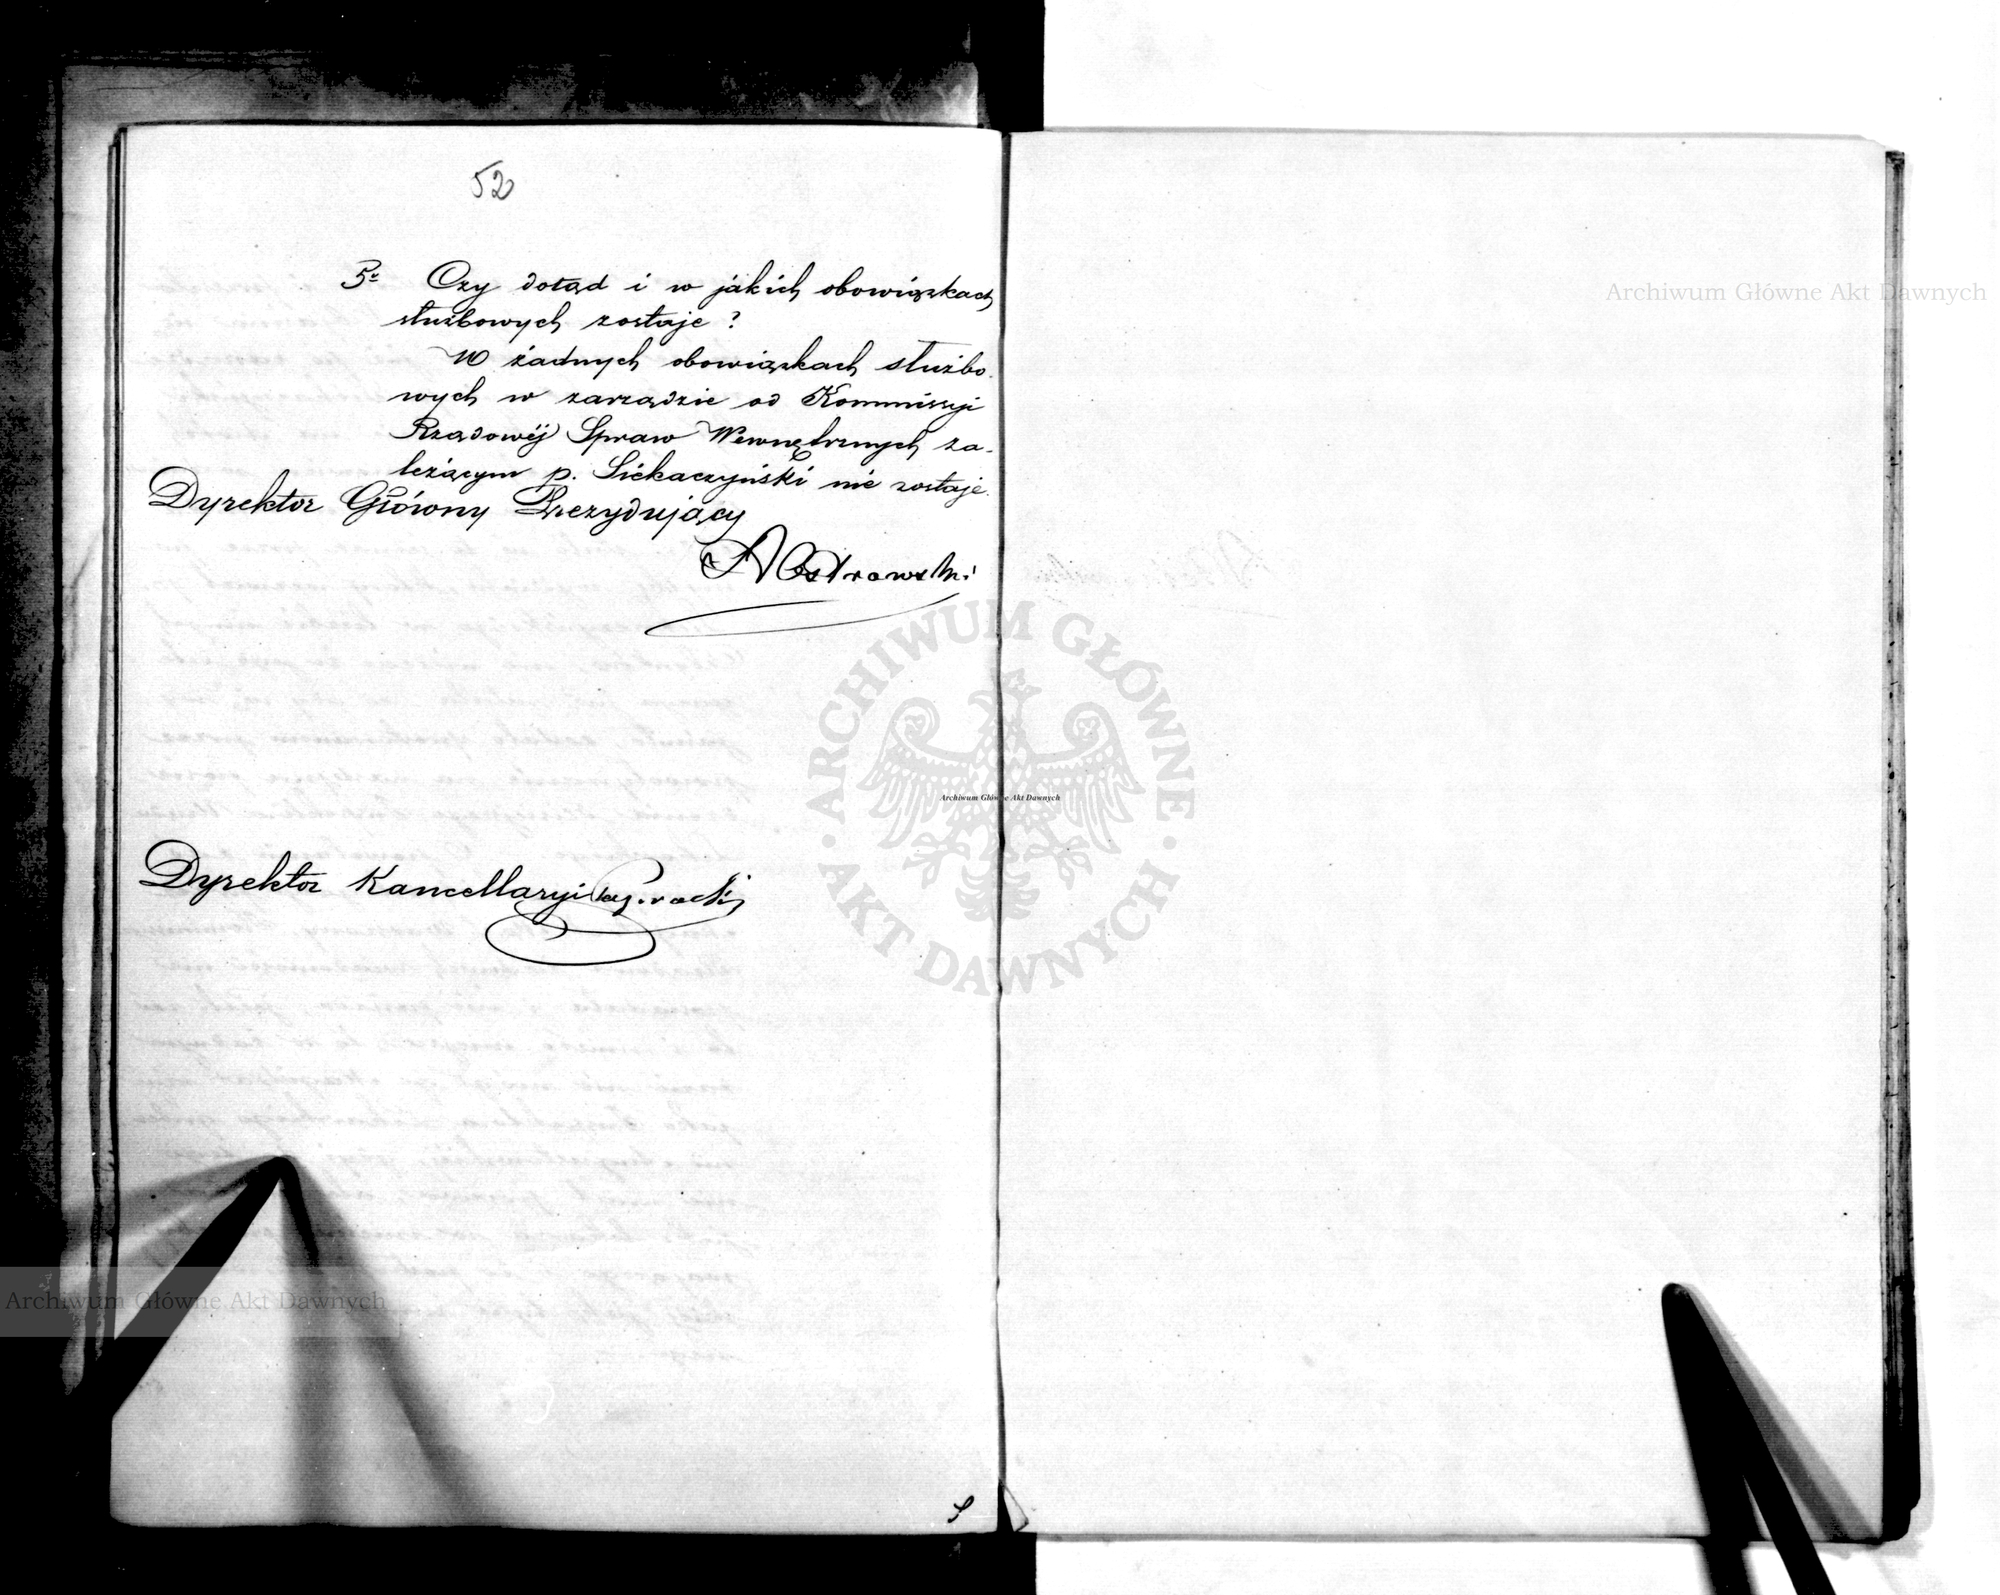 52
5º Czy dotąd i w jakich obowiązkach
służbowych zostaje?
W żadnych obowiązkach służbo-
wych w zarządzie od Kommissyi
Rządowéj Spraw Wewnętrznych za-
leżącym p. Siekaczyński nie zostaje.
Dyrektor Główny Prezydujący
A Ostrowski
Dyrektor Kancellaryi
Archiwum Główne Akt Dawnych
ARCHIWUM GŁÓWNE
Archiwum Główne Akt Dawnych
AKT DAWNYCH
Archiwum Główne Akt Dawnych